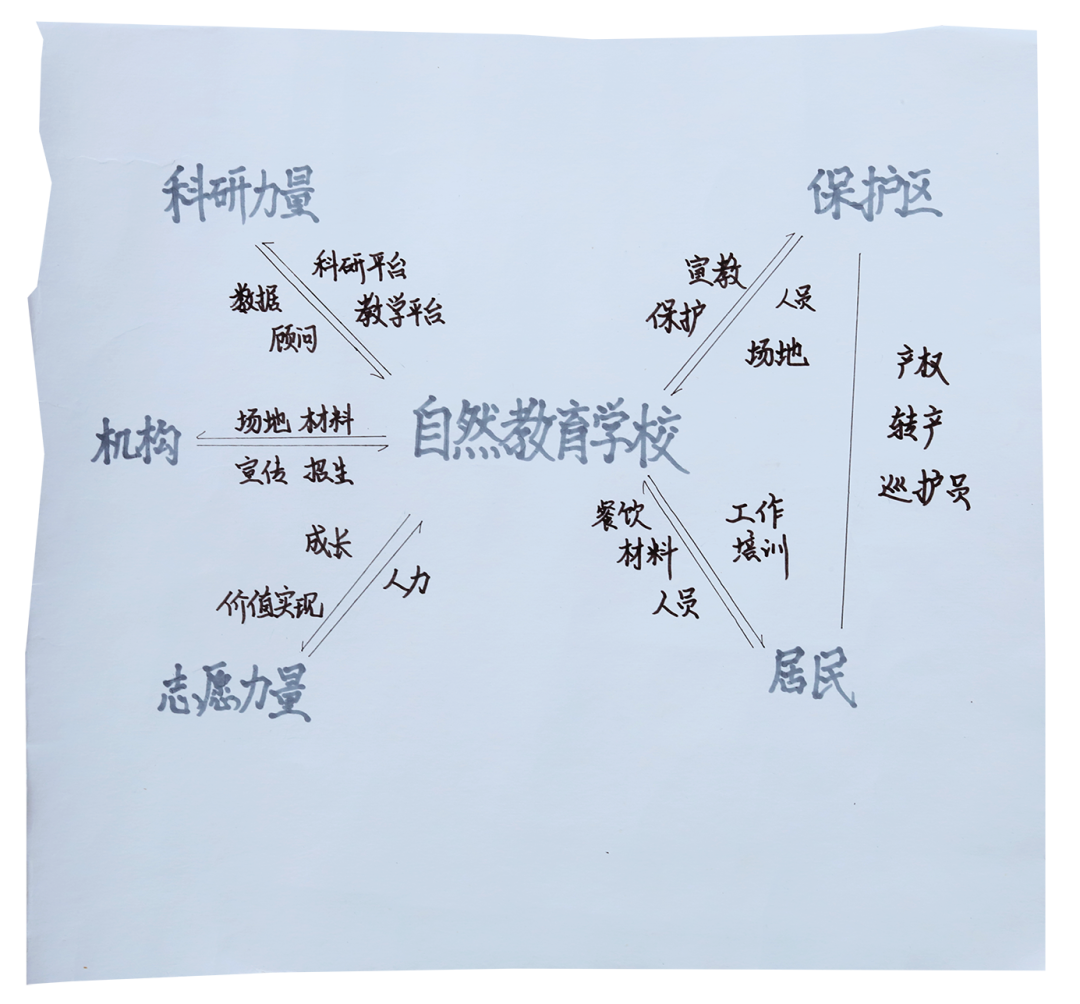 科研力量
保护区
科研平台
教学平台
数据
顾问
宣教
保护
人员
场地
产权
转产
巡护员
机构
场地 材料
宣传 招生
自然教育学校
成长
价值实现
人力
餐饮
材料
人员
工作
培训
志愿力量
居民